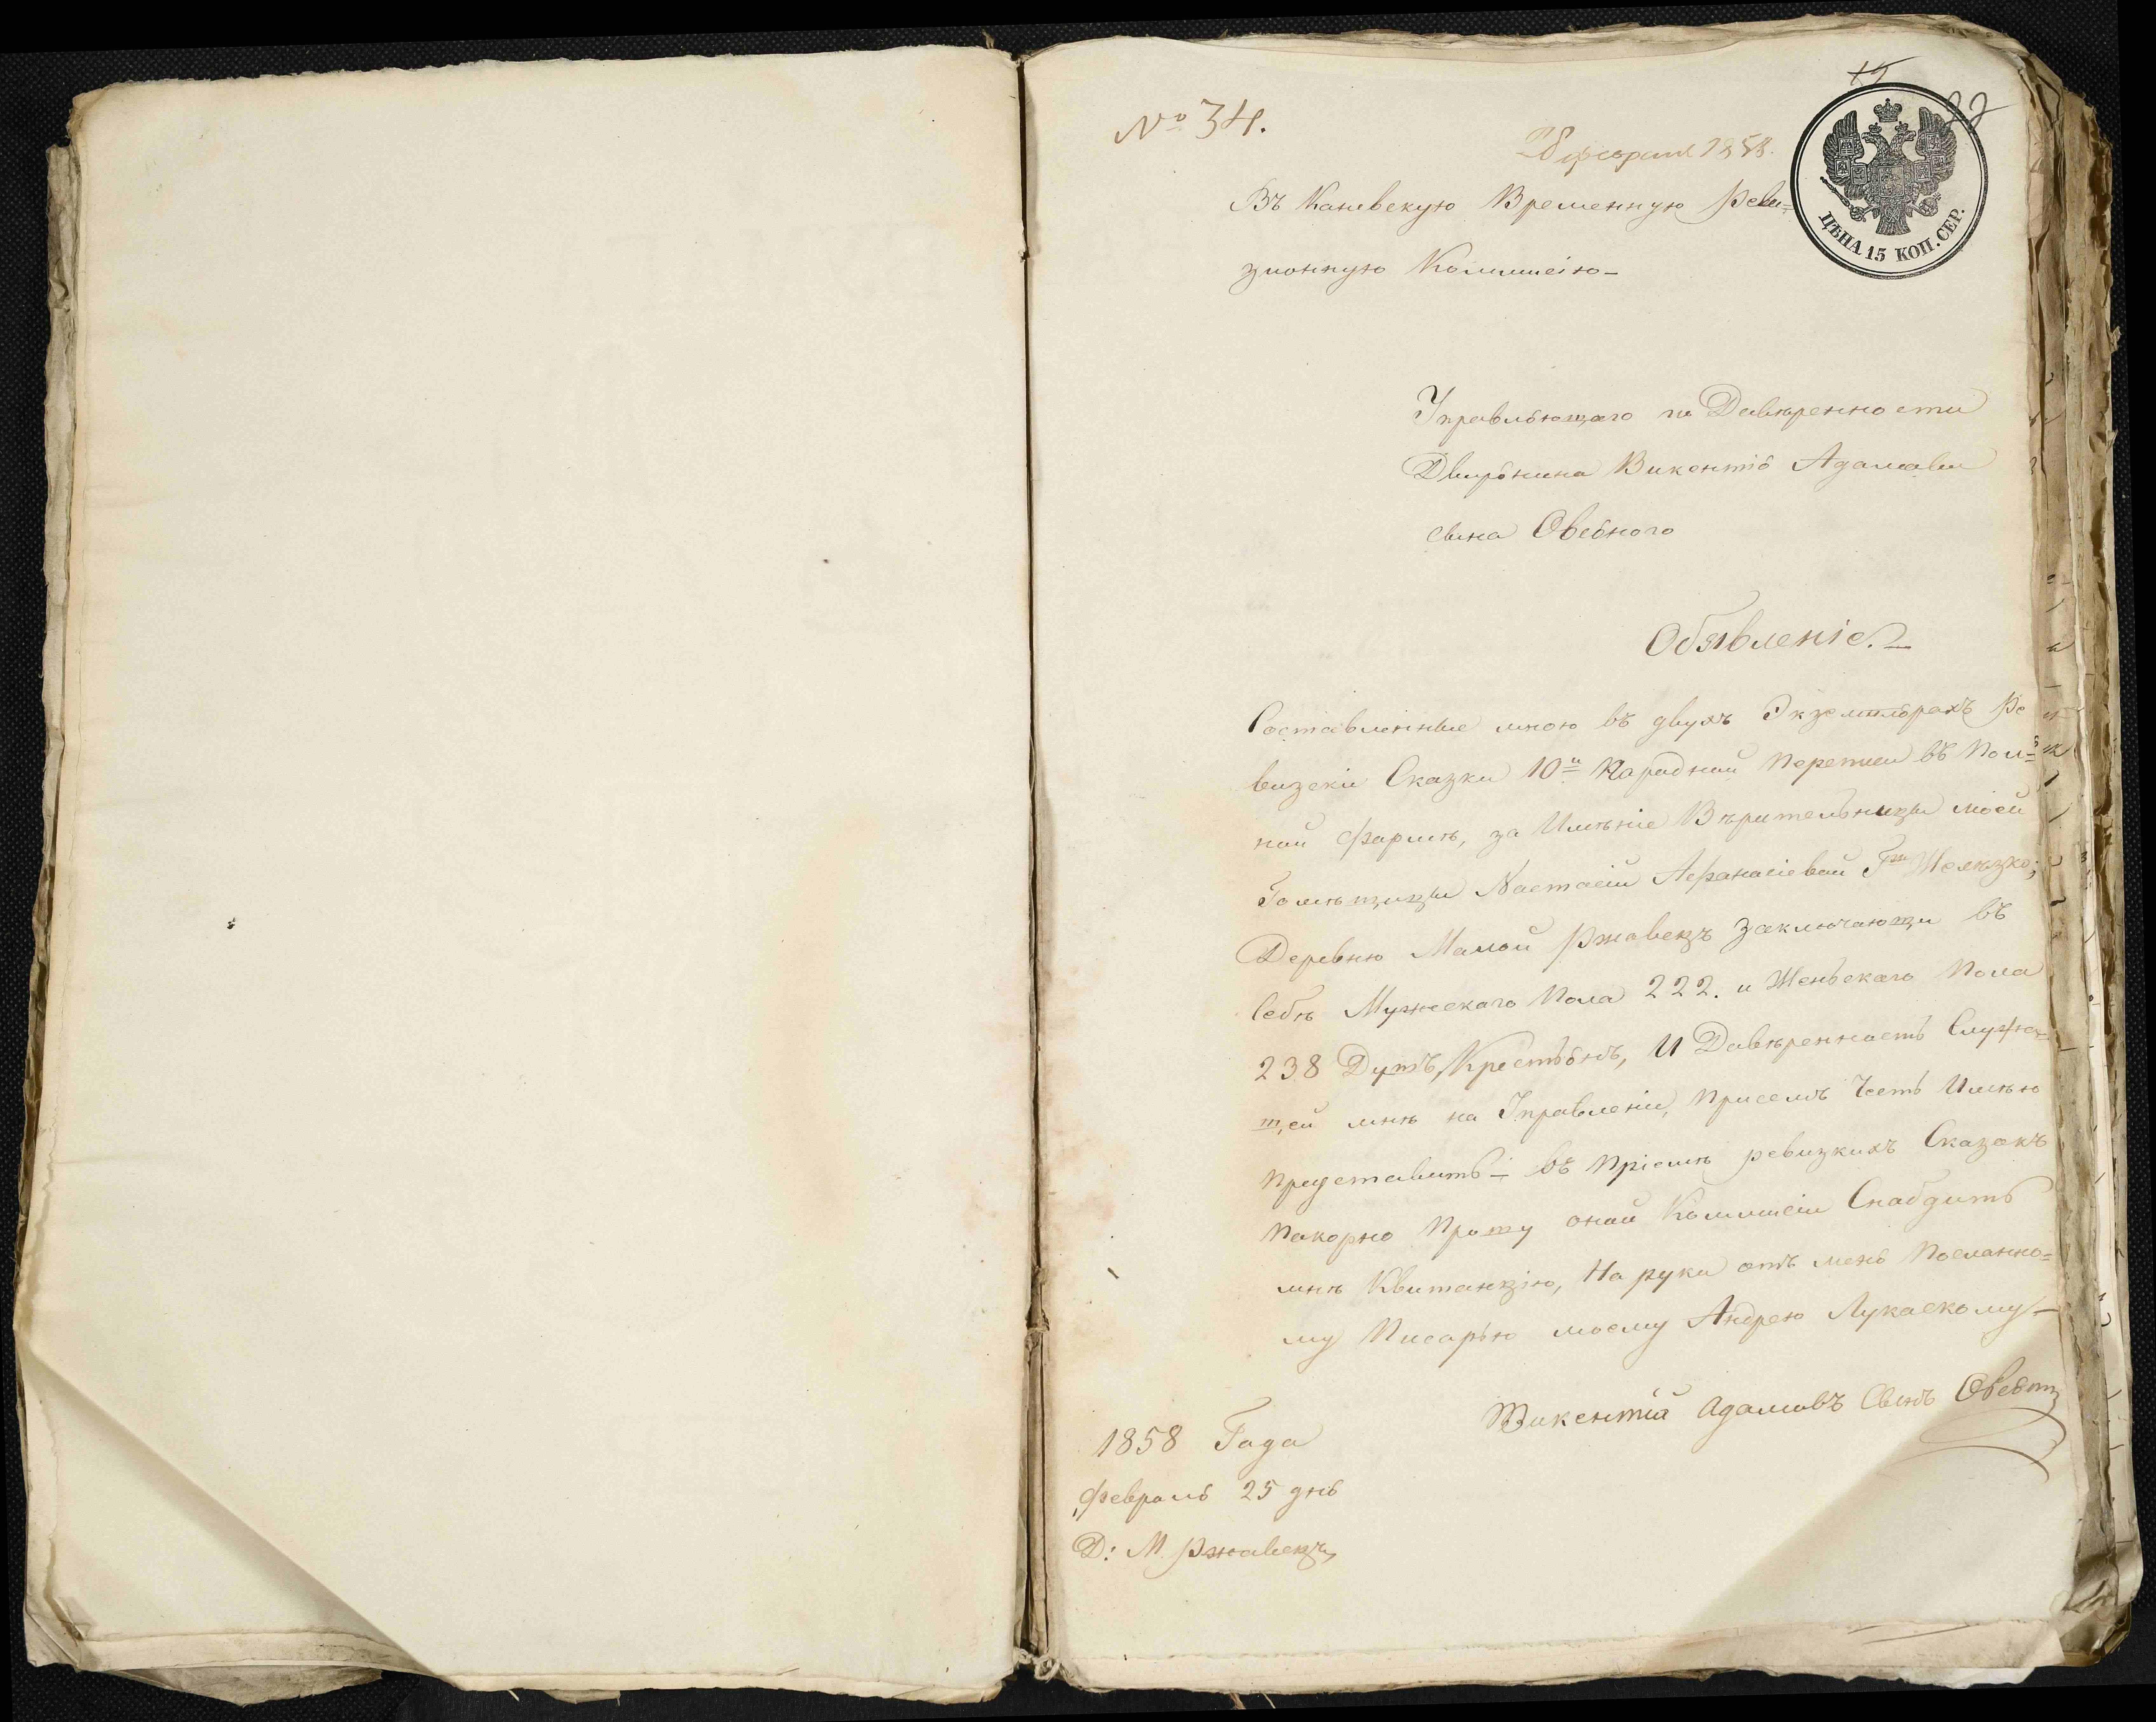 № 34.
22
февраля 1858.
ЦѢНА 15 КОП. СЕР.
Въ Каневскую Временную Реви=
зионную Коммисію –
Управляющаго по Давѣренности
Дворянина Викентія Адамави
сына
Обявленіе. –
Составленные мною въ двухъ Экземплярахъ Ре
визскіи Сказки 10й Народнай Переписи въ Пол=
най Формѣ, за Имѣніе Вѣрительницы моей
Помѣщицы Настасіи Афанасіевай Гжи
Деревню Малой Ржавецъ Заключающи въ
Себѣ Мужескаго Пола 222. и Женьскаго Пола
238 Душъ, Крестьянъ, И Давѣренность Служа=
щей мнѣ на Управленіи, Присемъ Честь Имѣю
Представить – въ Пріемѣ ревизкихъ Сказакъ
Пакорно Прошу онай Коммисіи Снабдить
мнѣ Квитанцію, На руки отъ меня Посланно=
му Писарью моему Андрею Лукаскому –
Викентій Адамовъ Сынъ
1858 Года
Февраля 25 дня
Д: М. Ржавецъ